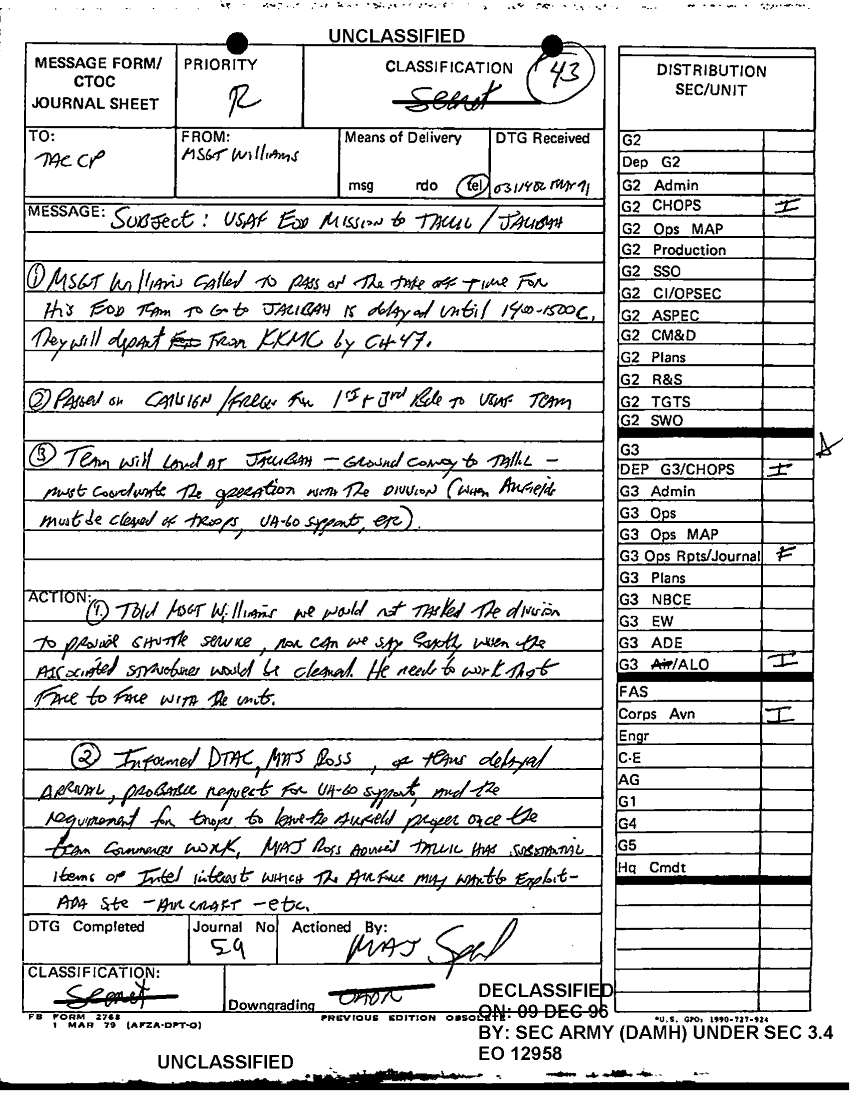 UNCLASSIFIED
MESSAGE FORM/
CTOC
JOURNAL SHEET
PRIORITY
R
CLASSIFICATION
Secret
43
TO:
TAC CP
FROM:
MSGT Williams
Means of Delivery
msg rdo tel
DTG Received
MAR 91
MESSAGE: Subject: USAF EOD Mission to TALLIL / JALIBAH
① MSGT Williams called to pass on the take off time for
His EOD Team to Go to JALIBAH is delayed until 1400-1500C.
They will depart From KKMC by CH47.
② Passed on CALLSIGN/FREQS for 1st + 3rd Bde to USAF TEAM
③ Team will Land at JALIBAH - Ground convoy to TALLIL -
must coordinate the operation with the Division (when Airfields
must be cleared of troops, UH-60 support, etc).
ACTION:
① Told MSGT Williams we would not tasked the division
to provide shuttle service, nor can we say exactly when the
associated structures would be cleared. He needs to work that
Face to Face with the units.
② Informed DTAC, MAJ Ross, of teams delayed
ARRIVAL, probable request for UH-60 support, and the
requirement for troops to leave the Airfield proper once the
team commences work. MAJ Ross advised TALLIL HAS substantial
items of Intel interest which the Air Force may want to Exploit-
ADA Site - AIRCRAFT - etc.
DTG Completed
Journal No
59
Actioned By:
MAJ
CLASSIFICATION:
Secret
Downgrading
OADR
FB FORM 2768
1 MAR 79 (AFZA-DPT-O)
PREVIOUS EDITION OBSOLETE
DISTRIBUTION
SEC/UNIT
G2
Dep G2
G2 Admin
G2 CHOPS I
G2 Ops MAP
G2 Production
G2 SSO
G2 CI/OPSEC
G2 ASPEC
G2 CM&D
G2 Plans
G2 R&S
G2 TGTS
G2 SWO
G3
DEP G3/CHOPS I
G3 Admin
G3 Ops
G3 Ops MAP
G3 Ops Rpts/Journal
G3 Plans
G3 NBCE
G3 EW
G3 ADE
G3 Air/ALO I
FAS
Corps Avn I
Engr
C-E
AG
G1
G4
G5
Hq Cmdt
*U.S. GPO: 1990-727-924
DECLASSIFIED
ON: 09 DEC 96
BY: SEC ARMY (DAMH) UNDER SEC 3.4
EO 12958
UNCLASSIFIED